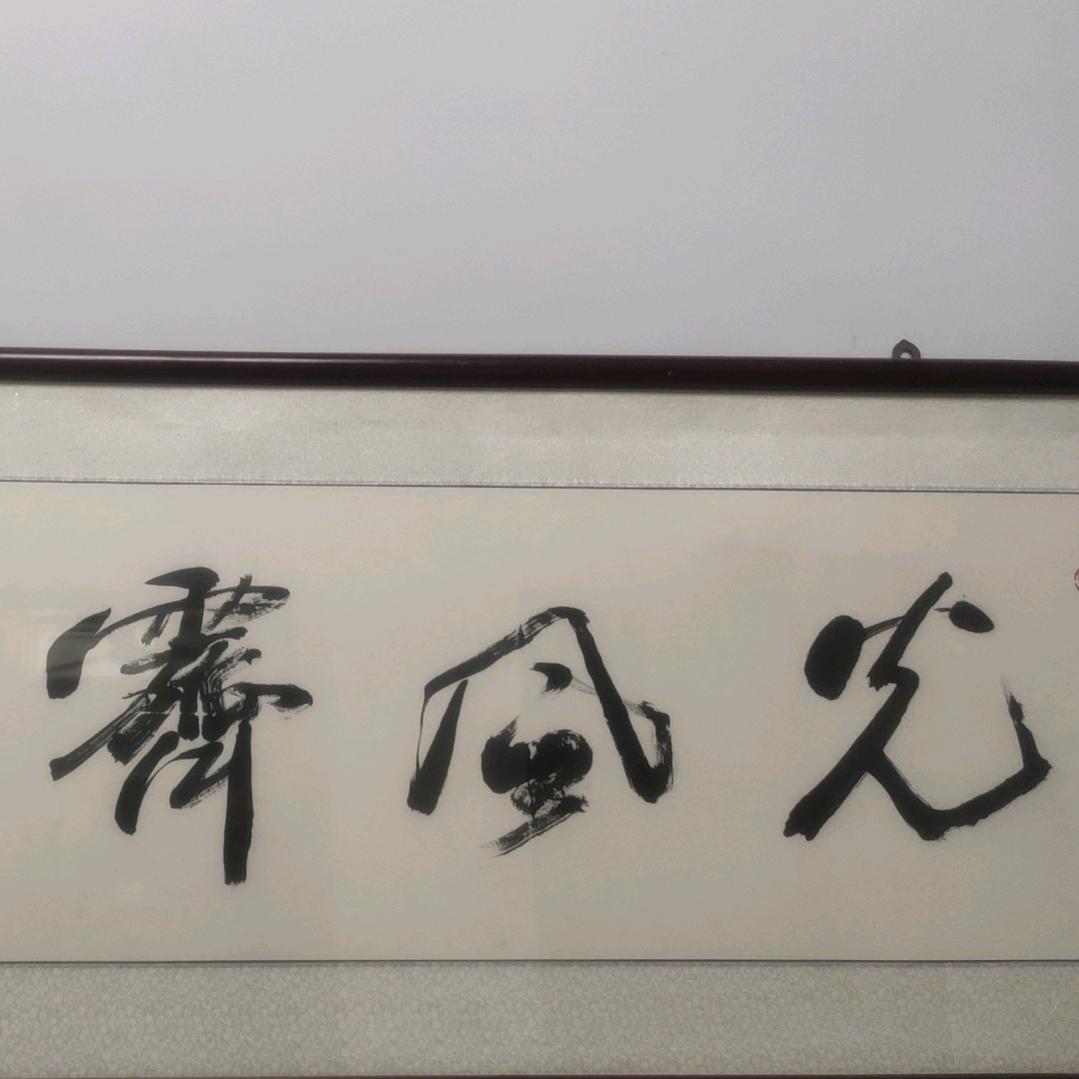 光風霽